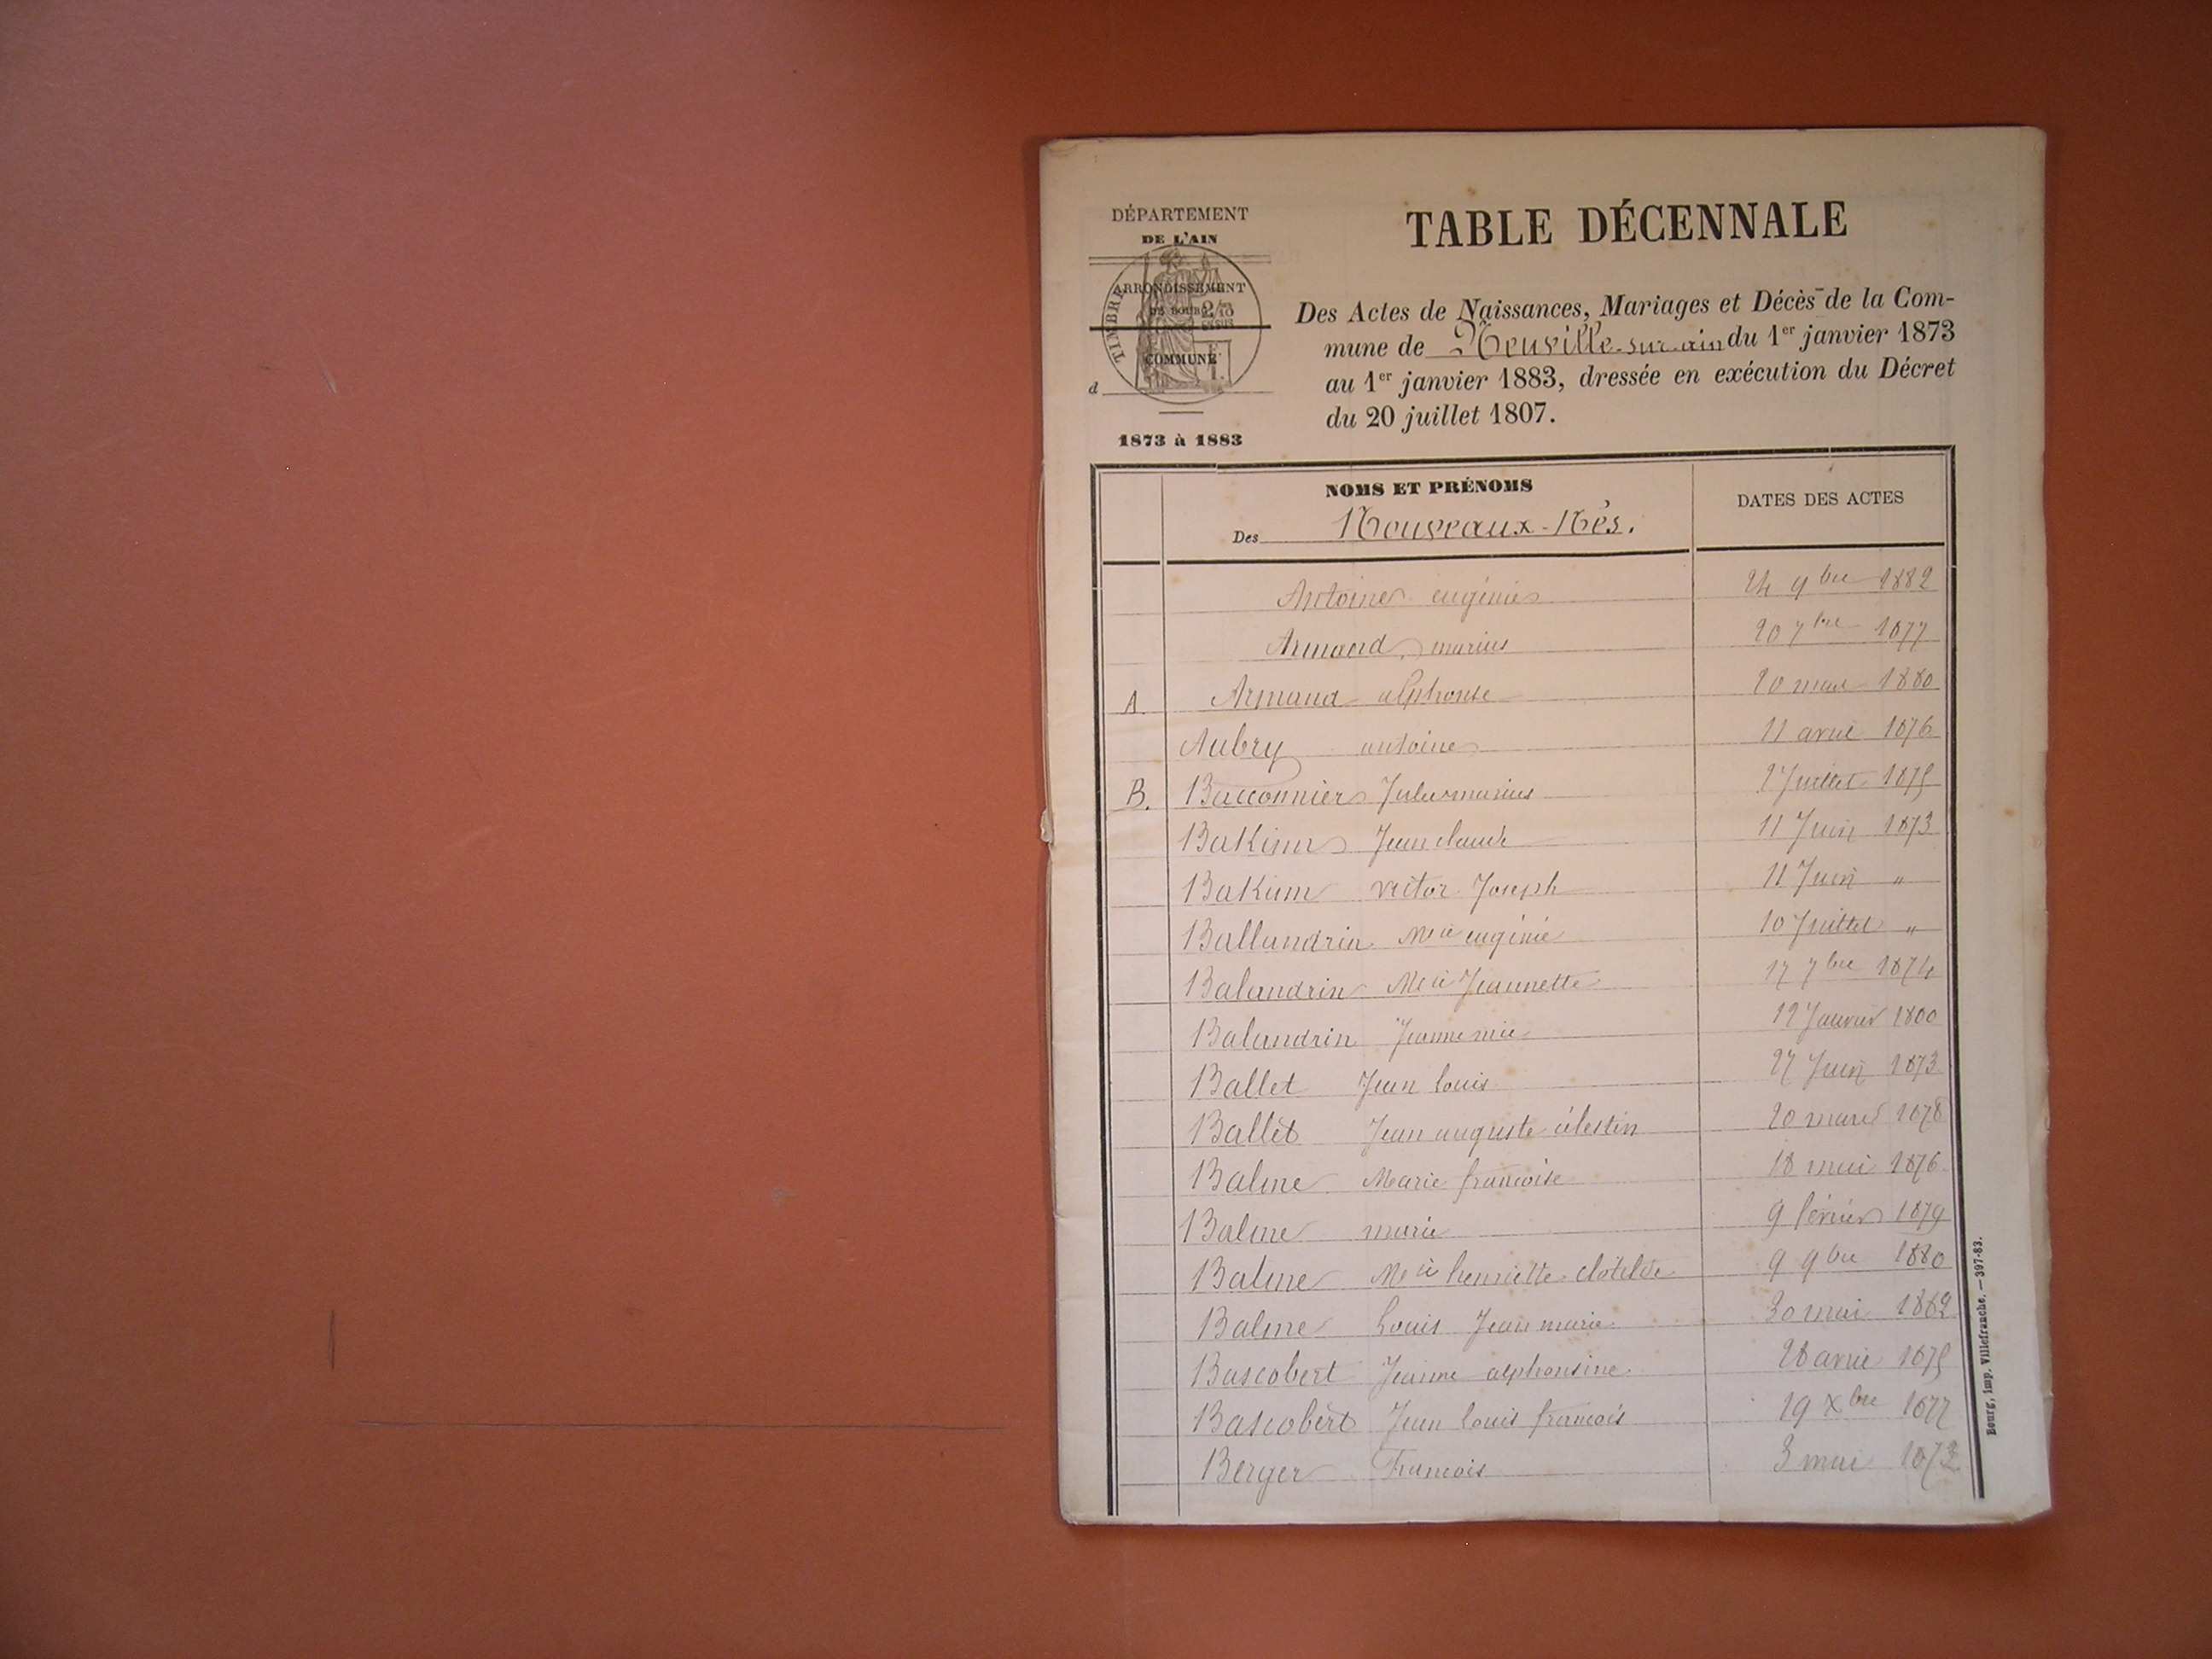 DÉPARTEMENT
DE L'AIN
ARRONDISSEMENT
DE BOURG
TIMBRE
COMMUNE
d
1873 à 1883
TABLE DÉCENNALE
Des Actes de Naissances, Mariages et Décès de la Com-
mune de Neuville-sur-ain du 1er janvier 1873
au 1er janvier 1883, dressée en exécution du Décret
du 20 juillet 1807.
NOMS ET PRÉNOMS DATES DES ACTES
Des Nouveaux-Nés.
Antoine eugénie 24 9bre 1882
Armand marius 20 7bre 1877
A. Armand alphonse 20 mars 1880
Aubry antoine 11 avril 1876
B. Bacconnier Jules marius 2 Juillet 1875
Bakim Jean claude 11 Juin 1873
Bakim victor Joseph 11 Juin "
Ballandrin Mie eugénie 10 Juillet "
Balandrin Mie Jeannette 17 7bre 1874
Balandrin Jeanne mie Janvier 1880
Ballet Jean louis 27 Juin 1873
Ballet Jean auguste célestin 20 mars 1878
Balme Marie françoise 18 mai 1876
Balme marie 9 février 1879
Balme Mie henriette clotilde 9 9bre 1880
Balme Louis Jean marie 30 mai 1882
Bascobert Jeanne alphonsine 28 avril 1875
Bascobert Jean louis françois 19 xbre 1877
Berger François 3 mai 1873
Bourg, imp. Villefranche. — 397-83.